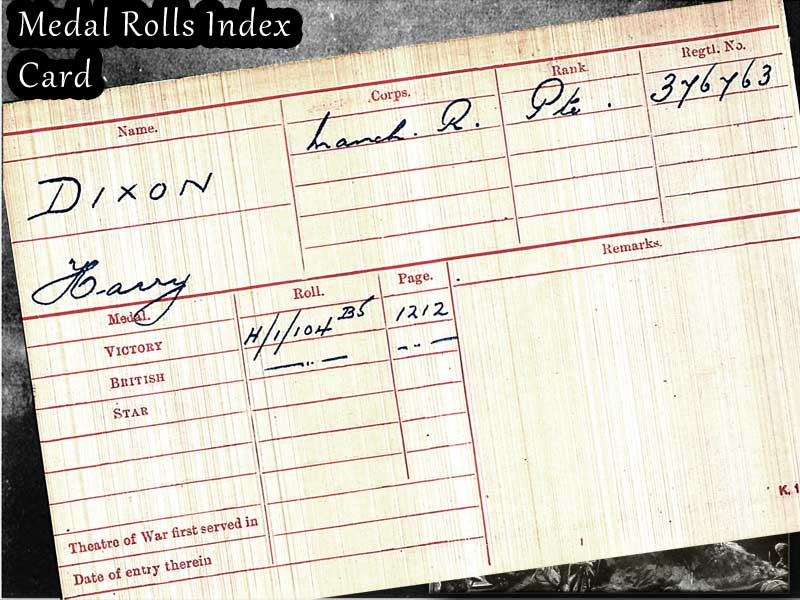 Medal Rolls Index
Card
Name. Corps. Rank. Regtl. No.
DIXON Manch. R. Pte. 376763
Harry
Remarks.
Medal. Roll. Page.
VICTORY H/1/104 B5 1212
BRITISH —„— —„—
STAR
K. 1
Theatre of War first served in
Date of entry therein